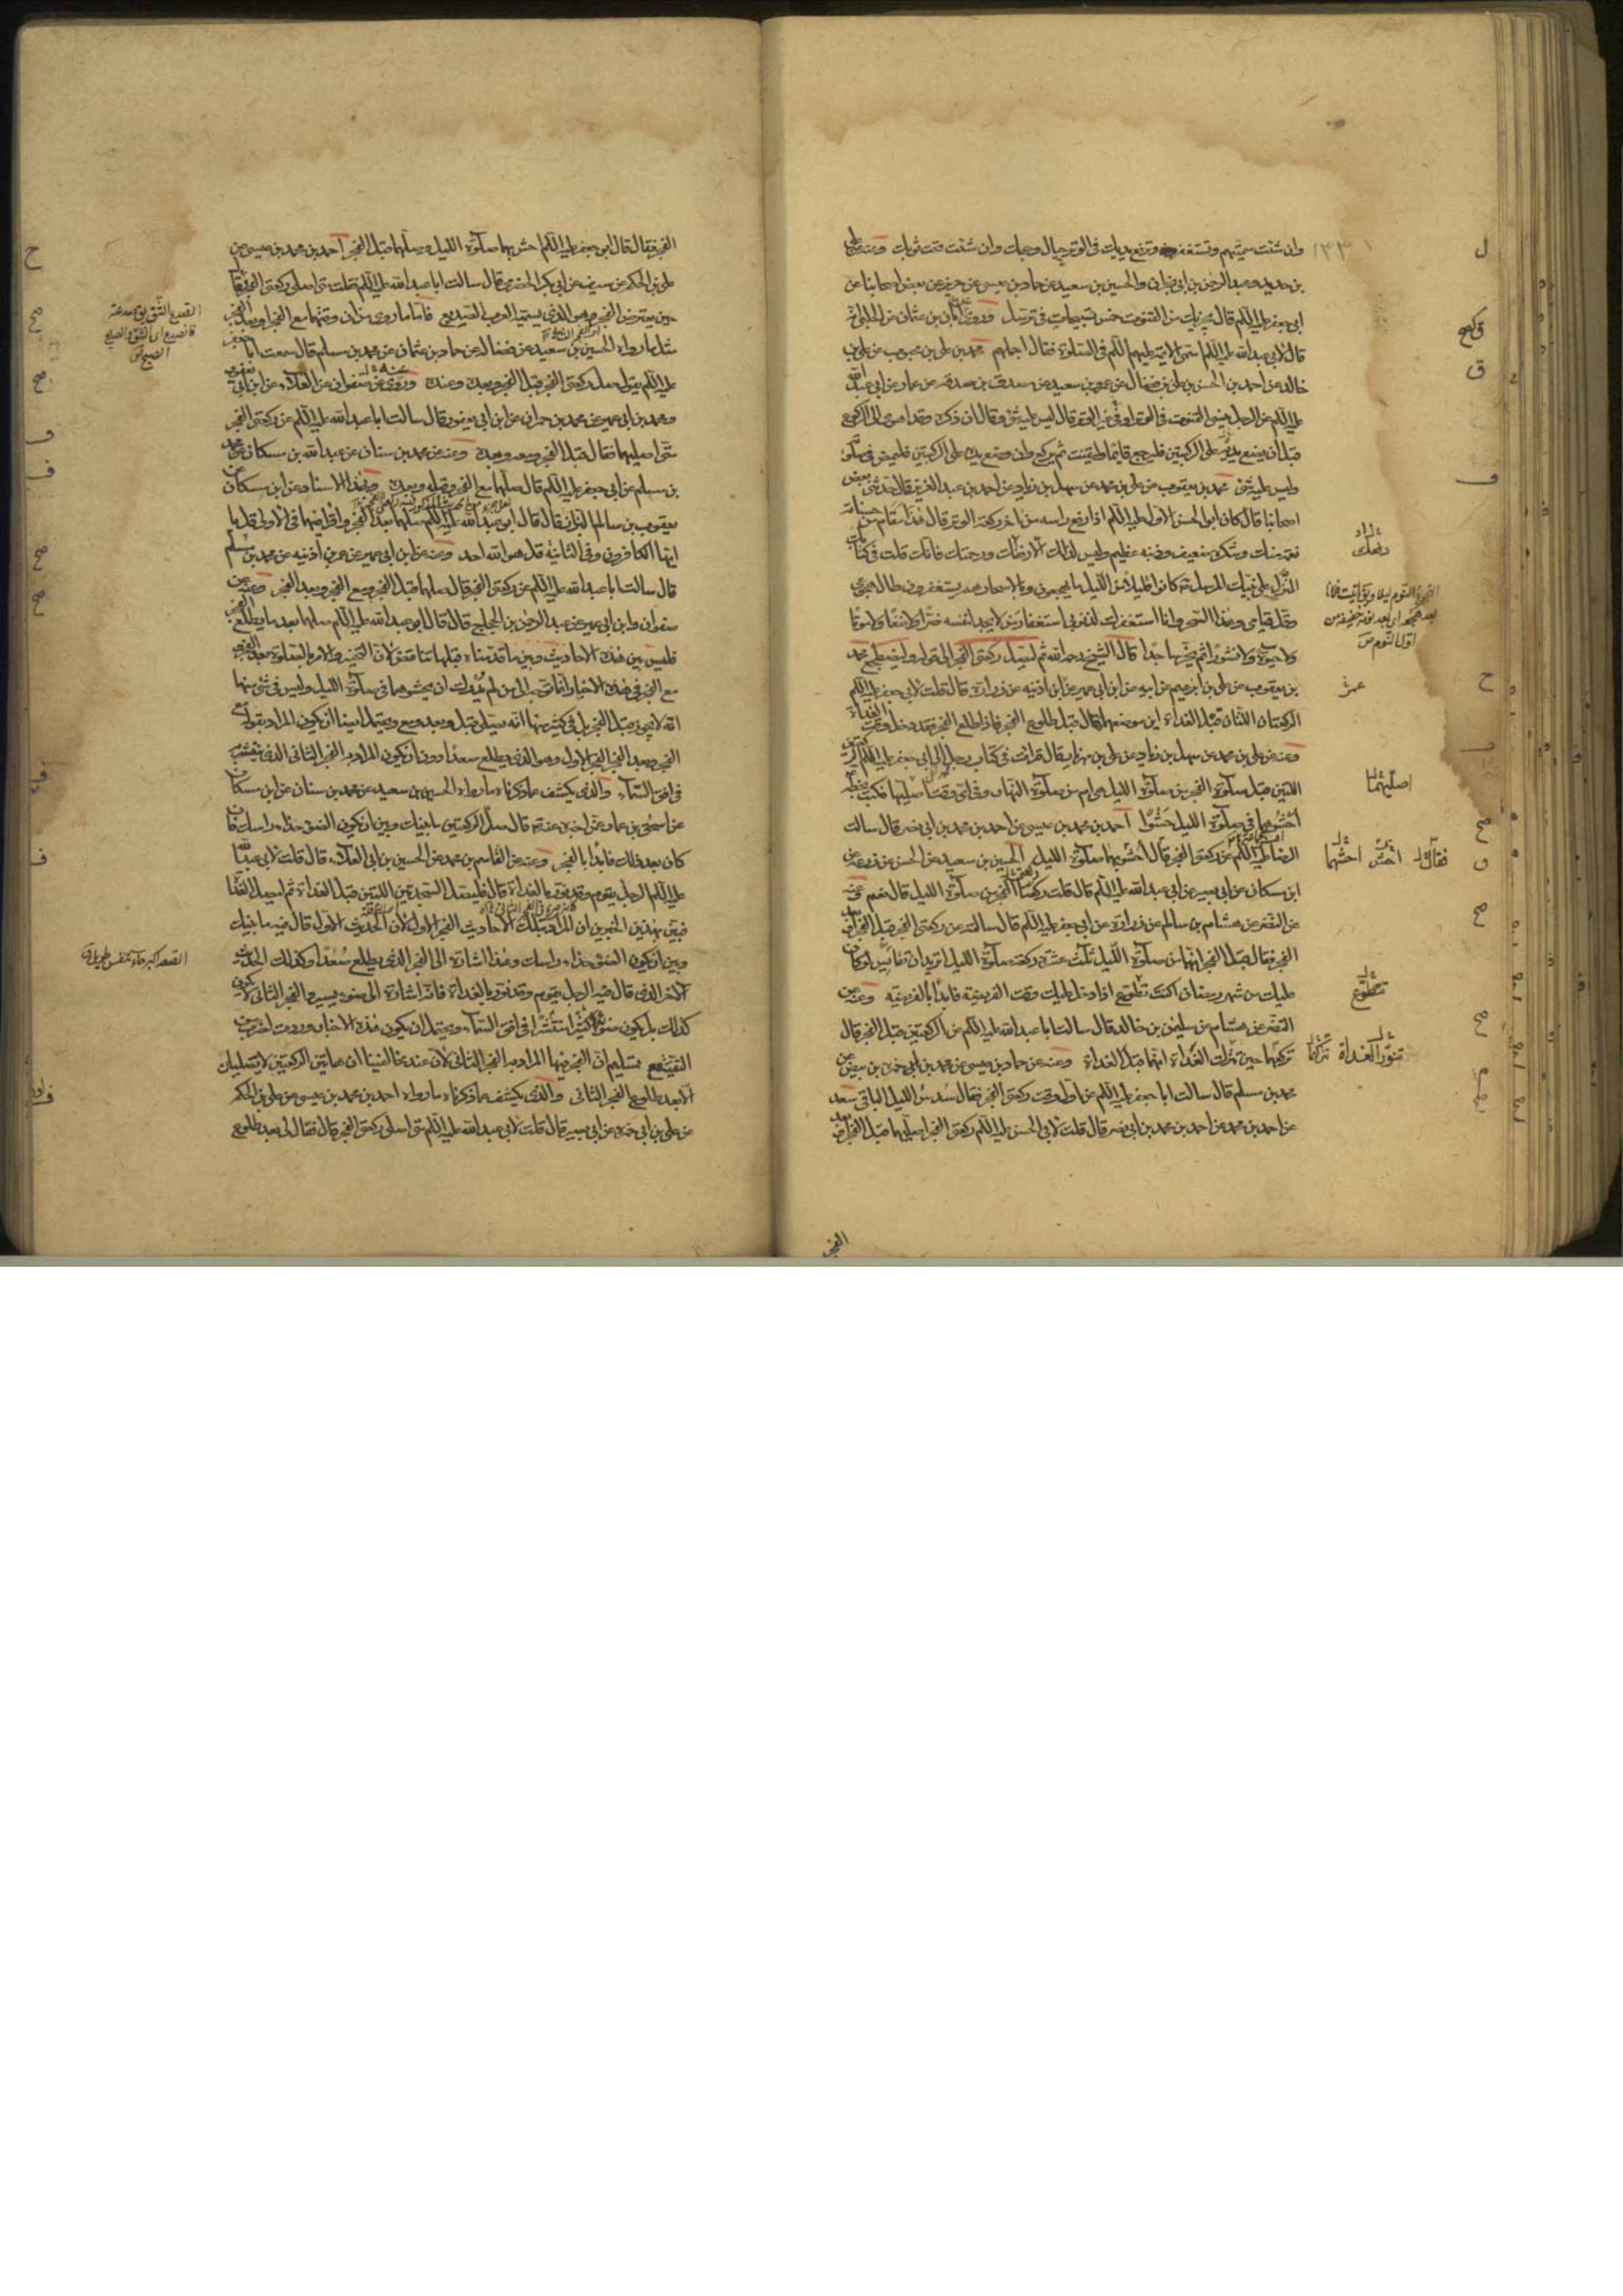 وان شئت سميتهم وتستغفر وترفع يديك في الوتر حيال وجهك وان شئت فتحت ثوبك وعنه عن علي
بن حديد وعبد الرحمن بن ابي نجران والحسين بن سعيد عن حماد بن عيسى عن حريز عن بعض اصحابنا عن
ابي جعفر عليه السلم قال يجزيك من القنوت خمس تسبيحات في ترسل وروى ابان بن عثمان عن الحلبي
قال قلت لابي عبد الله عليه السلم اسمي الائمة عليهم السلم في الصلوة فقال اجملهم محمد بن علي بن محبوب عن علي بن
خالد عن احمد بن الحسن بن علي بن فضال عن عمرو بن سعيد عن مصدق بن صدقة عن عمار عن ابي عبد الله
عليه السلم عن الرجل ينسى القنوت في الوتر او في غير الوتر قال ليس عليه شيء وقال ان ذكره وقد اهوى الى الركوع
قبل ان يضع يديه على الركبتين فليرجع قايما وليقنت ثم يركع وان وضع يديه على الركبتين فليمض في صلوته
وليس عليه شيء محمد بن يعقوب عن علي بن محمد عن سهل بن زياد عن احمد بن عبد العزيز قال حدثني بعض
اصحابنا قال كان ابو الحسن الاول عليه السلم اذا رفع راسه من اخر ركعة الوتر قال هذا مقام من حسناته
نعمة منك وشكره ضعيف وذنبه عظيم وليس لذلك الا رفقك ورحمتك فانك قلت في كتابك
المنزل على نبيك المرسل كانوا قليلا من الليل ما يهجعون وبالاسحار هم يستغفرون طال هجوعي
وقل قيامي وهذا السحر وانا استغفرك لذنوبي استغفار من لا يجد لنفسه ضرا ولا نفعا ولا موتا
ولا حيوة ولا نشورا ثم يخر ساجدا قال الشيخ رحمه الله ثم ليصل ركعتي الفجر الى قوله وليضطجع محمد
بن يعقوب عن علي بن ابرهيم عن ابيه عن ابن ابي عمير عن ابن اذينه عن زرارة قال قلت لابي جعفر عليه السلم
الركعتان اللتان قبل الغداة اين موضعهما فقال قبل طلوع الفجر فاذا طلع الفجر فقد دخل وقت الغداة
وعنه عن علي بن محمد عن سهل بن زياد عن علي بن مهزيار قال قرات في كتاب رجل الى ابي جعفر عليه السلم الركعتين
اللتين قبل صلوة الفجر من صلوة الليل هي ام من صلوة النهار وفي اي وقت اصليها فكتب بخطه
احشوهما في صلوة الليل حشوا احمد بن محمد بن عيسى عن احمد بن محمد بن ابي نصر قال سالت
الرضا عليه السلم عن ركعتي الفجر قال احشوا بهما صلوة الليل الحسين بن سعيد عن الحسن عن زرعه عن
ابن مسكان عن ابي بصير عن ابي عبد الله عليه السلم قال قلت ركعتا الفجر من صلوة الليل قال نعم عنه
عن النضر عن هشام بن سالم عن زرارة عن ابي جعفر عليه السلم قال سالته عن ركعتي الفجر قبل الفجر او بعد
الفجر فقال قبل الفجر انهما من صلوة الليل ثلث عشرة ركعة صلوة الليل اتريد ان تقايس لو كان
عليك من شهر رمضان اكنت تطوع اذا دخل عليك وقت الفريضه فابدأ بالفريضه وعنه عن
النضر عن هشام عن سليمن بن خالد قال سالت ابا عبد الله عليه السلم عن الركعتين قبل الفجر قال
تركعهما حين تترك الغداة انهما قبل الغداة وعنه عن حماد بن عيسى عن محمد بن ابي حمزه بن بيض عن
محمد بن مسلم قال سالت ابا جعفر عليه السلم عن اول وقت ركعتي الفجر فقال سدس الليل الباقي سعد
عن احمد بن محمد عن احمد بن محمد بن ابي نصر قال قلت لابي الحسن عليه السلم ركعتي الفجر اصليهما قبل الفجر او بعد
الفجر
ل
ق
عمر
اصليهما
فقال احش احشهما
تتطوع
تنور الغداة
الفجر فقال قال ابو جعفر عليه السلم احش بهما صلوة الليل وصلهما قبل الفجر احمد بن محمد بن عيسى عن
علي بن الحكم عن سيف عن ابي بكر الحضرمي قال سالت ابا عبد الله عليه السلم فقلت متى اصلي ركعتي الفجر فقال
حين يعترض الفجر وهو الذي يسميه العرب الصديع فاما ما روي من ان وقتهما مع الفجر او بعد الفجر
مثل ما رواه الحسين بن سعيد عن فضالة عن حماد بن عثمان عن محمد بن مسلم قال سمعت ابا جعفر
عليه السلم يقول صل ركعتي الفجر قبل الفجر وبعده وعنده وروى عن صفوان عن العلاء عن ابن ابي يعفور
ومحمد بن ابي عمير عن محمد بن حمران عن ابن ابي يعفور قال سالت ابا عبد الله عليه السلم عن ركعتي الفجر
متى اصليهما فقال قبل الفجر ومعه وبعده وعنه عن محمد بن سنان عن عبد الله بن مسكان عن محمد
بن مسلم عن ابي جعفر عليه السلم قال صلهما مع الفجر وقبله وبعده وبهذا الاسناد عن ابن مسكان عن
يعقوب بن سالم البزاز قال قال ابو عبد الله عليه السلم صلهما بعد الفجر واقرا فيهما في الاولى قل يا
ايها الكافرون وفي الثانية قل هو الله احد وعنه عن ابن ابي عمير عن عمر بن اذينه عن محمد بن مسلم
قال سالت ابا عبد الله عليه السلم عن ركعتي الفجر قال صلهما قبل الفجر ومع الفجر وبعد الفجر وعنه عن
صفوان وابن ابي عمير عن عبد الرحمن بن الحجاج قال قال ابو عبد الله عليه السلم صلهما بعد ما يطلع الفجر
فليس بين هذه الاحاديث وبين ما قدمناه قبلها تناقض لان التخيير والامر بالصلوة بعد الفجر
مع الفجر في هذه الاخبار انما توجه الى من لم يدرك ان يحشوهما في صلوة الليل وليس في شيء منها
انه لا يجوز قبل الفجر بل في كثير منها انه يصلي قبل وبعد ومع ويحتمل ايضا ان يكون المراد بقوله مع
الفجر وبعد الفجر الفجر الاول وهو الذي يطلع صعدا دون ان يكون المراد به الفجر الثاني الذي ينتشر
في افق السماء والذي يكشف عما ذكرناه ما رواه الحسين بن سعيد عن محمد بن سنان عن ابن مسكان
عن اسحق بن عمار عمن اخبره عنه قال صل الركعتين ما بينك وبين ان يكون الضوء حذاء راسك فان
كان بعد ذلك فابدأ بالفجر وعنه عن القاسم بن محمد عن الحسين بن ابي العلاء قال قلت لابي عبد الله
عليه السلم الرجل يقوم وقد نور بالغداة قال فليصل السجدتين اللتين قبل الغداة ثم ليصل الغداة
فبين بهذين الخبرين ان المراد بتلك الاحاديث الفجر الاول لان الحديث الاول قال فيه ما بينك
وبين ان يكون الضوء حذاء راسك وهذا اشارة الى الفجر الذي يطلع صعدا وكذلك الحديث
الاخر الذي قال فيه الرجل يقوم وقد نور بالغداة فانه اشارة الى ضوء يسير والفجر الثاني لا يكون
كذلك بل يكون ضوءا كثيرا منتشرا في افق السماء ويحتمل ان يكون هذه الاخبار وردت لضرب من
التقية مع تسليم ان الفجر فيها المراد به الفجر الثاني لان عند مخالفينا ان هاتين الركعتين لا تصليان
الا بعد طلوع الفجر الثاني والذي يكشف عما ذكرناه ما رواه احمد بن محمد بن عيسى عن علي بن الحكم
عن علي بن ابي حمزه عن ابي بصير قال قلت لابي عبد الله عليه السلم متى اصلي ركعتي الفجر قال فقال لي بعد طلوع